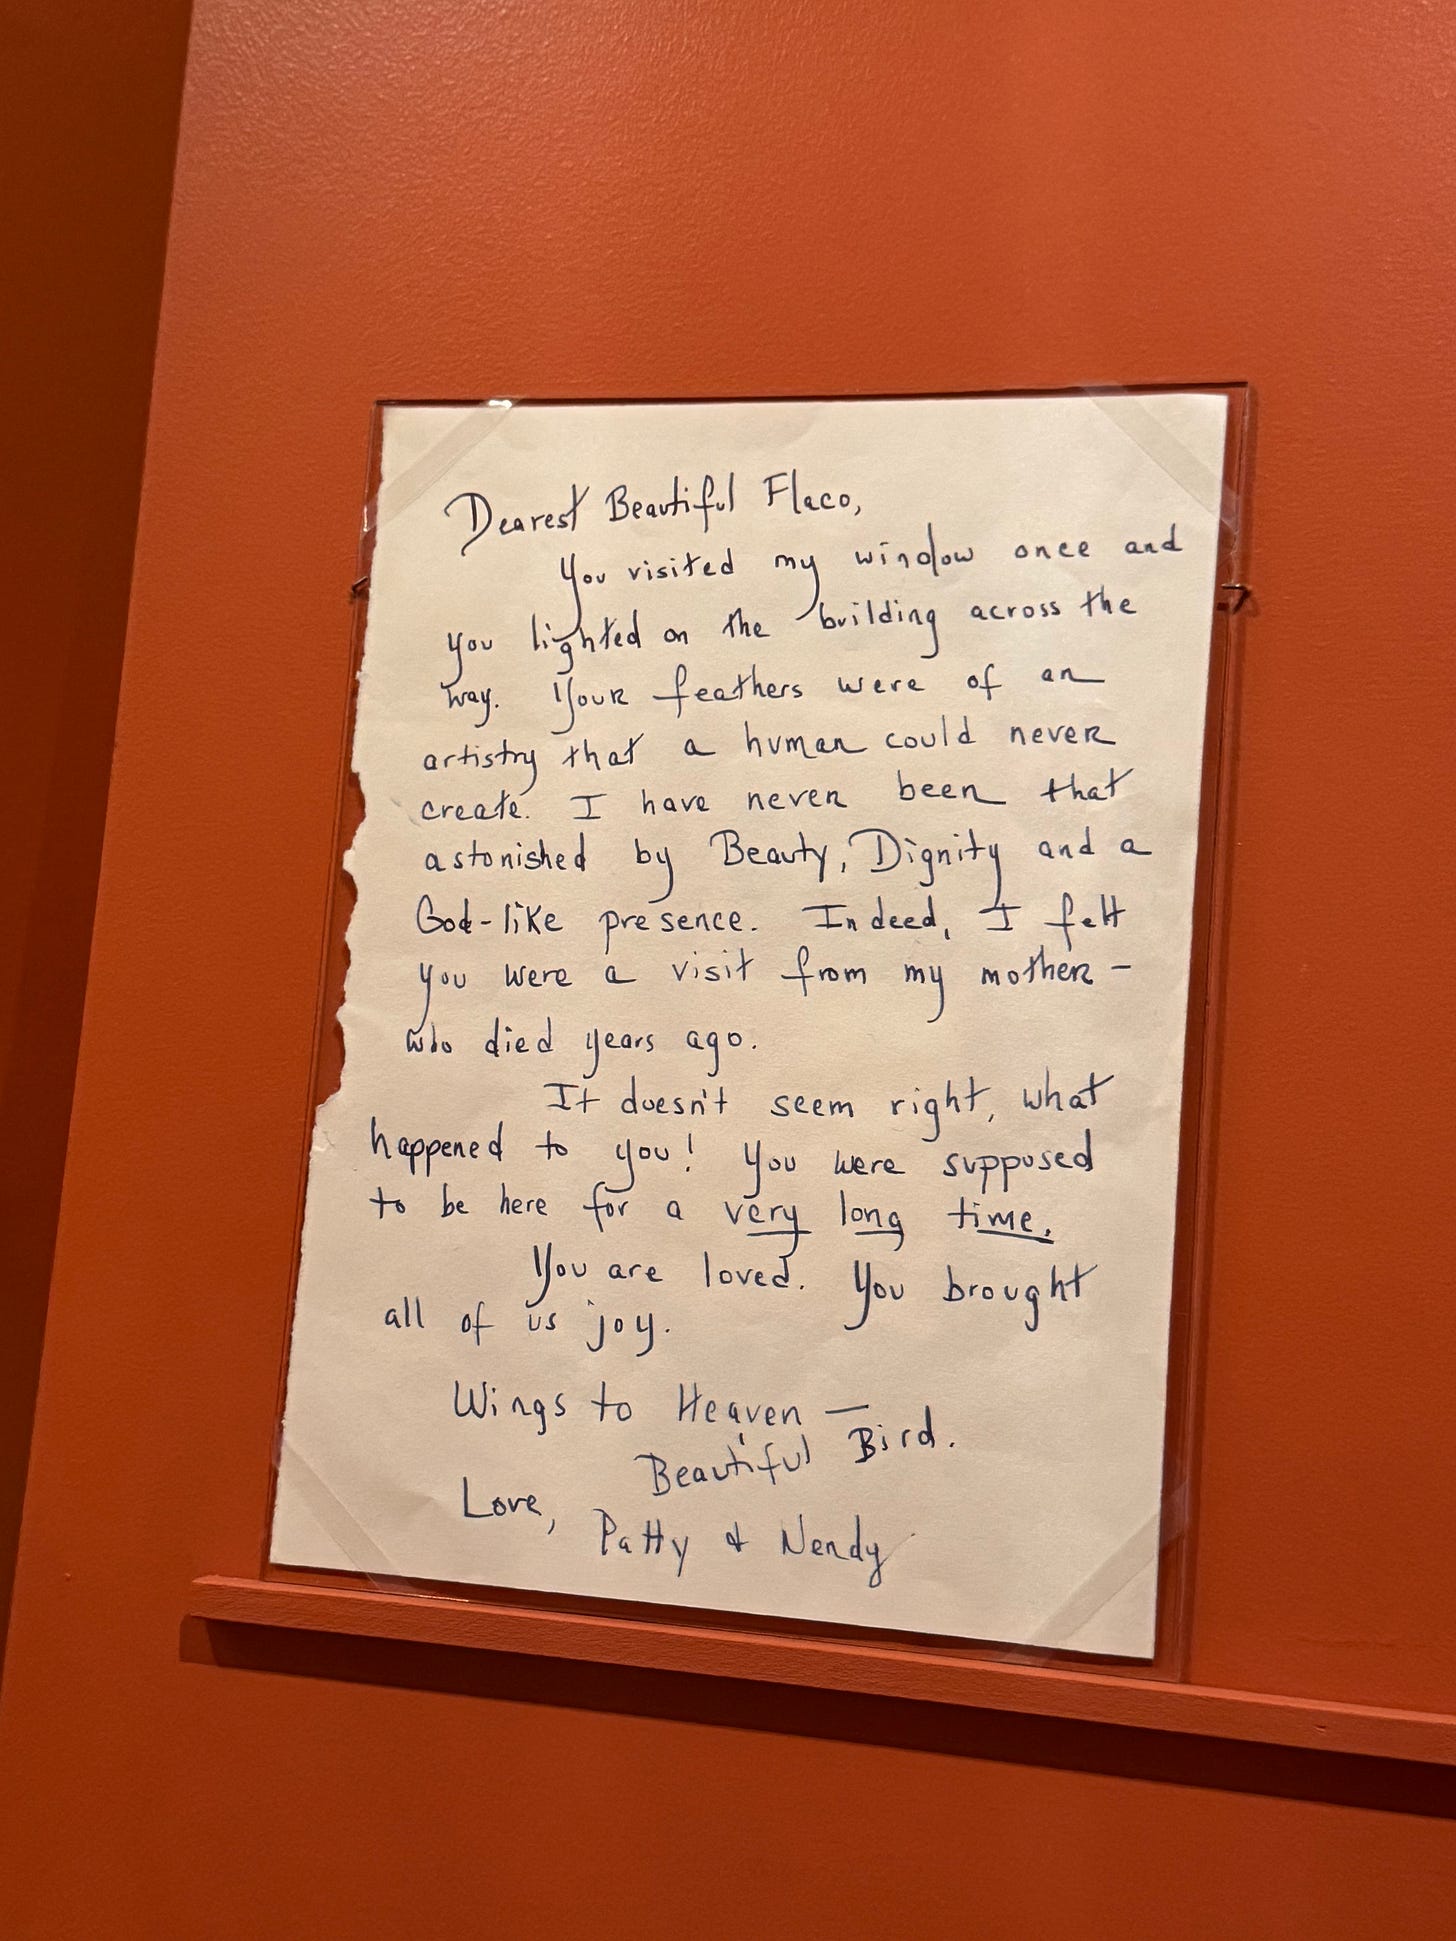 Dearest Beautiful Flaco,
You visited my window once and
you lighted on the building across the
way. Your feathers were of an
artistry that a human could never
create. I have never been that
astonished by Beauty, Dignity and a
God-like presence. Indeed, I felt
you were a visit from my mother –
who died years ago.
It doesn't seem right, what
happened to you! You were supposed
to be here for a very long time.
You are loved. You brought
all of us joy.
Wings to Heaven —
Beautiful Bird.
Love,
Patty & Nendy